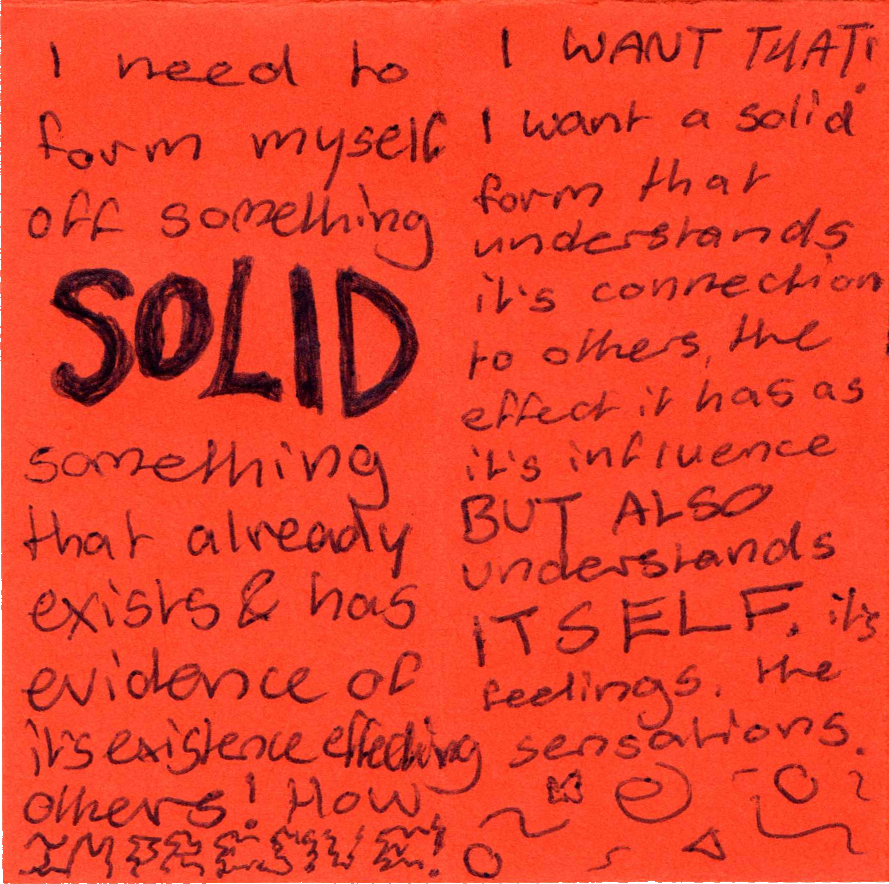 I need to
form myself
off something
SOLID
something
that already
exists & has
evidence of
it's existence effecting
others! How
I WANT THAT!
I want a solid
form that
understands
it's connection
to others, the
effect it has as
it's influence
BUT ALSO
understands
ITSELF. it's
feelings. the
sensations.